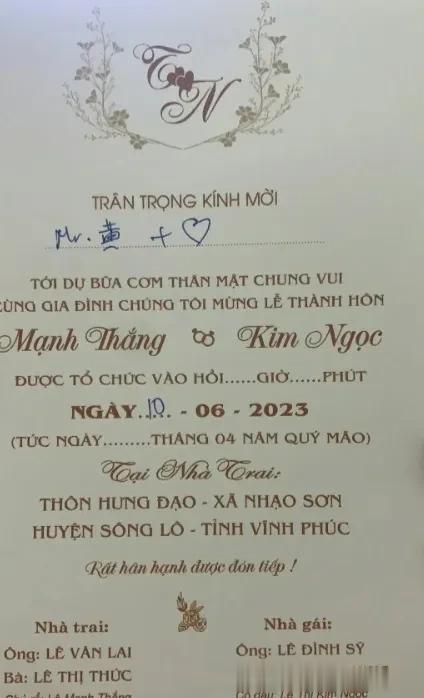 T N
TRÂN TRỌNG KÍNH MỜI
Mr. 黄 + ♡
TỚI DỰ BỮA CƠM THÂN MẬT CHUNG VUI
CÙNG GIA ĐÌNH CHÚNG TÔI MỪNG LỄ THÀNH HÔN
Mạnh Thắng Kim Ngọc
ĐƯỢC TỔ CHỨC VÀO HỒI......GIỜ......PHÚT
NGÀY.10.. - 06 - 2023
(TỨC NGÀY.........THÁNG 04 NĂM QUÝ MÃO)
Tại Nhà Trai:
THÔN HƯNG ĐẠO - XÃ NHẠO SƠN
HUYỆN SÔNG LÔ - TỈNH VĨNH PHÚC
Rất hân hạnh được đón tiếp !
Nhà trai:
Ông: LÊ VĂN LAI
Bà: LÊ THỊ THỨC
Chú rể: Lê Mạnh Thắng
Nhà gái:
Ông: LÊ ĐÌNH SỸ
Cô dâu: Lê Thị Kim Ngọc